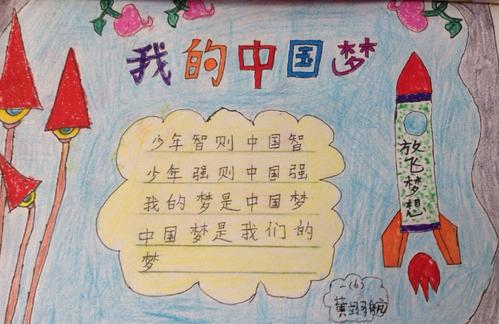 我的中国梦
少年智则中国智
少年强则中国强
我的梦是中国梦
中国梦是我们的
梦
放飞梦想
一(6)